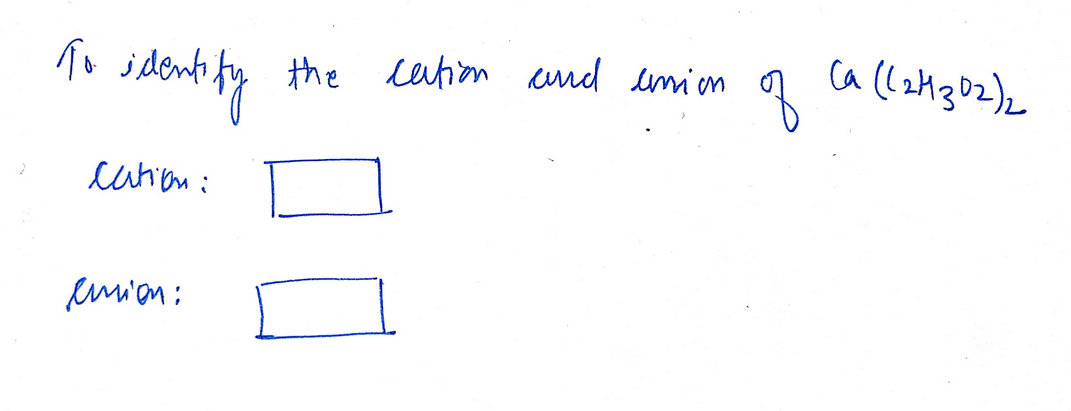 To identify the cation and anion of Ca(C2H3O2)2
cation:
anion: